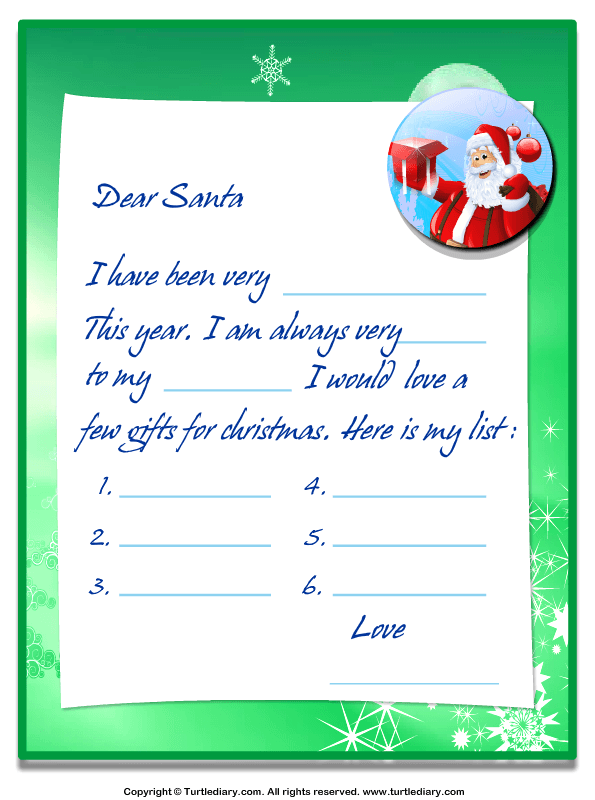 Dear Santa
I have been very
This year. I am always very
to my I would love a
few gifts for christmas. Here is my list :
1. 4.
2. 5.
3. 6.
Love
Copyright © Turtlediary.com. All rights reserved. www.turtlediary.com